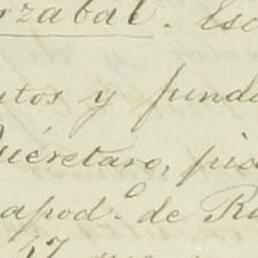 rzabal. Esc
utos y funda
Querétaro, pid
apod.º de Ra
17